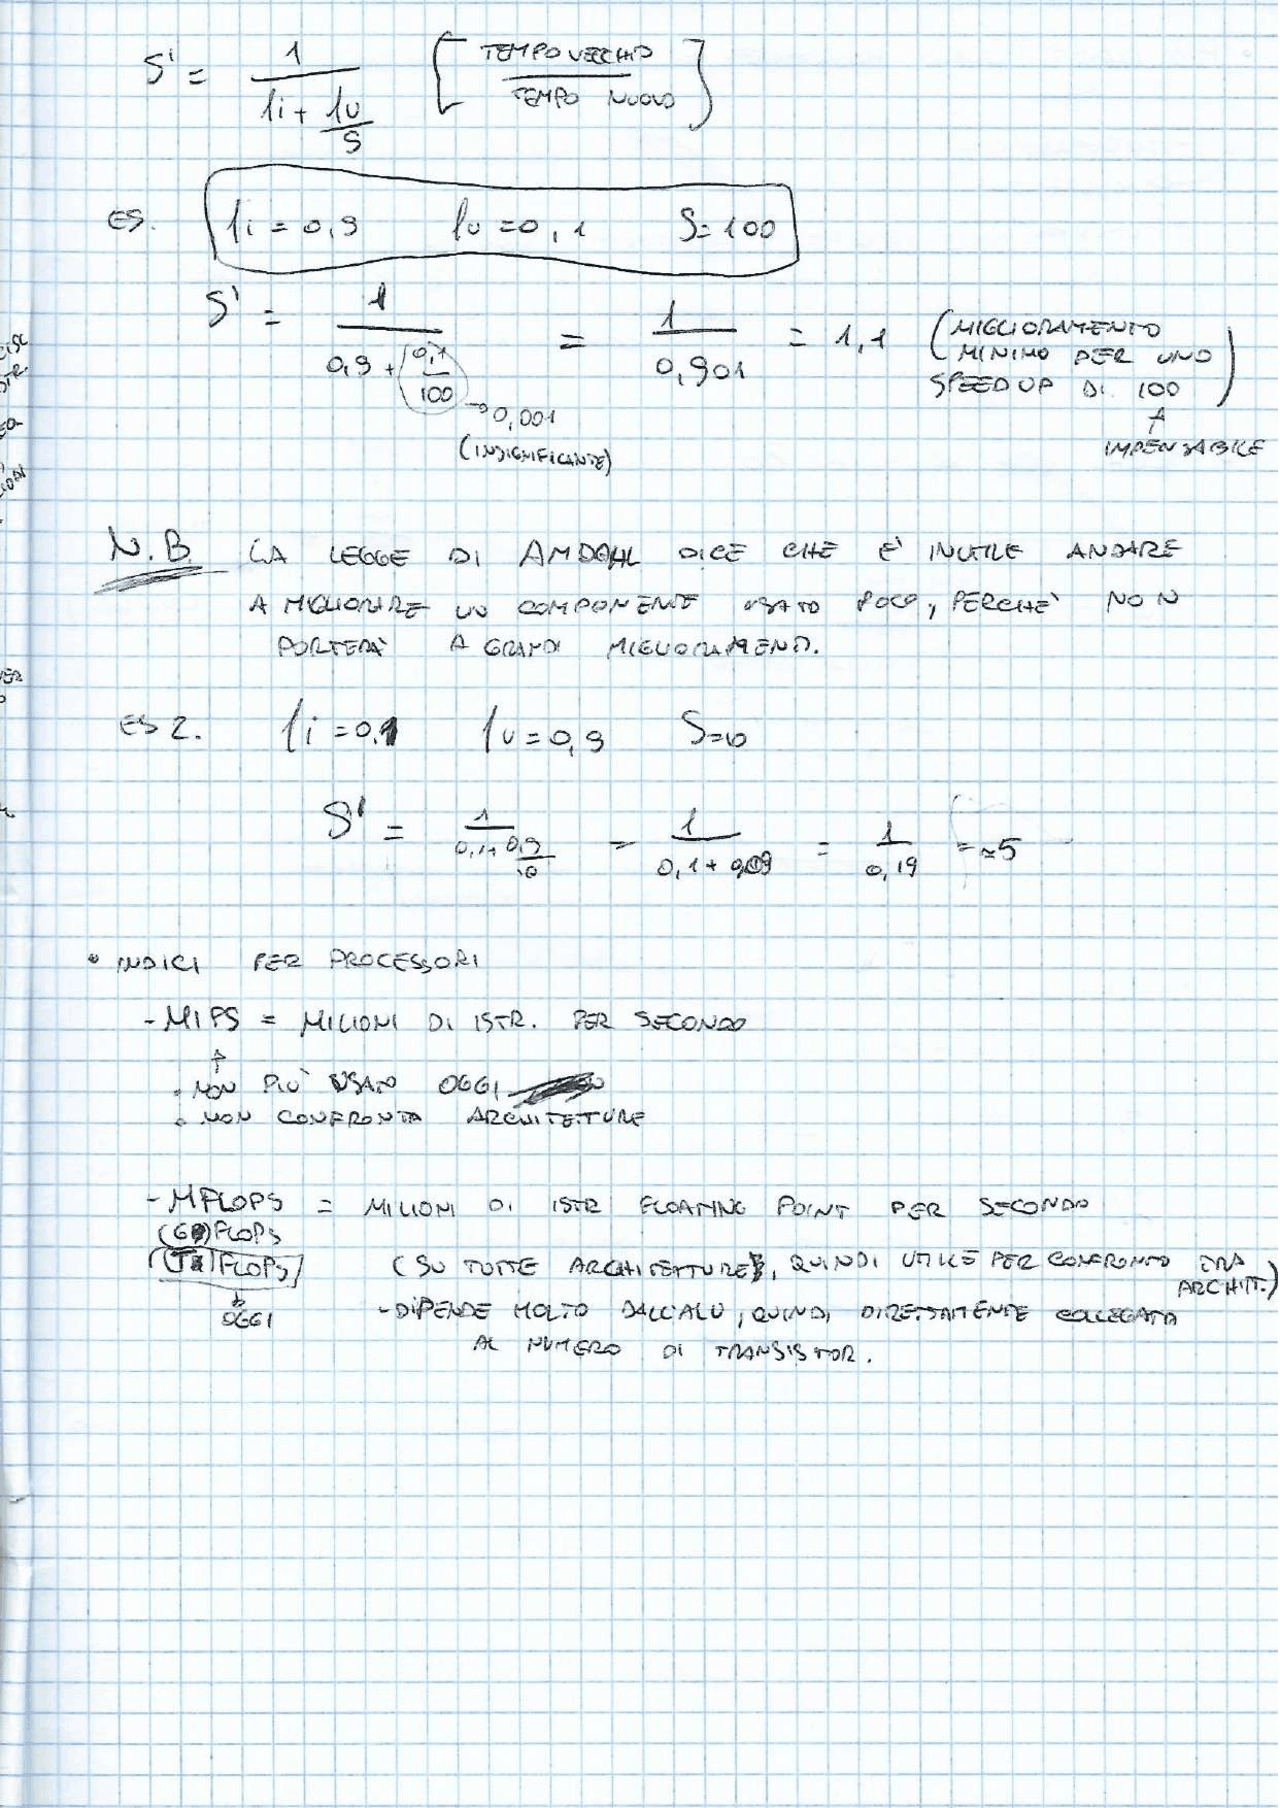 S' = 1 / (fi + fv/S) [TEMPO VECCHIO / TEMPO NUOVO]
ES. fi = 0,9 fv = 0,1 S = 100
S' = 1 / (0,9 + 0,1/100) = 1 / 0,901 = 1,1 (MIGLIORAMENTO
MINIMO PER UNO
SPEEDUP DI 100)
→ 0,001
(INSIGNIFICANTE)
↑
IMPENSABILE
N.B. LA LEGGE DI AMDAHL DICE CHE E' INUTILE ANDARE
A MIGLIORARE UN COMPONENTE USATO POCO, PERCHE' NON
PORTERA' A GRANDI MIGLIORAMENTI.
ES 2. fi = 0,1 fv = 0,9 S = 10
S' = 1 / (0,1 + 0,9/10) = 1 / (0,1 + 0,09) = 1 / 0,19 = ≈5
• INDICI PER PROCESSORI
- MIPS = MILIONI DI ISTR. PER SECONDO
↑
• NON PIU' USATO OGGI
• NON CONFRONTA ARCHITETTURE
- MFLOPS = MILIONI DI ISTR FLOATING POINT PER SECONDO
(G)FLOPS
(T)FLOPS (SU TUTTE ARCHITETTURE, QUINDI UTILE PER CONFRONTO TRA
ARCHIT.)
↓
OGGI
- DIPENDE MOLTO DALL'ALU, QUINDI DIRETTAMENTE COLLEGATA
AL NUMERO DI TRANSISTOR.